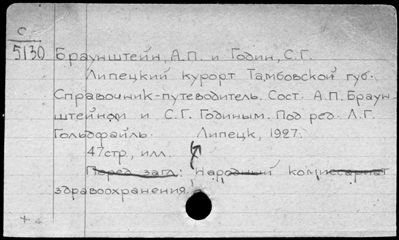 С.
5130
Браунштейн, А.П. и Годин, С.Г.
Липецкий курорт Тамбовской губ.
Справочник-путеводитель. Сост. А.П. Браун
штейном и С.Г. Годиным. Под ред. Л.Г.
Гольдфайль. Липецк, 1927.
47стр., илл.
Перед загл: Народный комиссариат
здравоохранения.
+